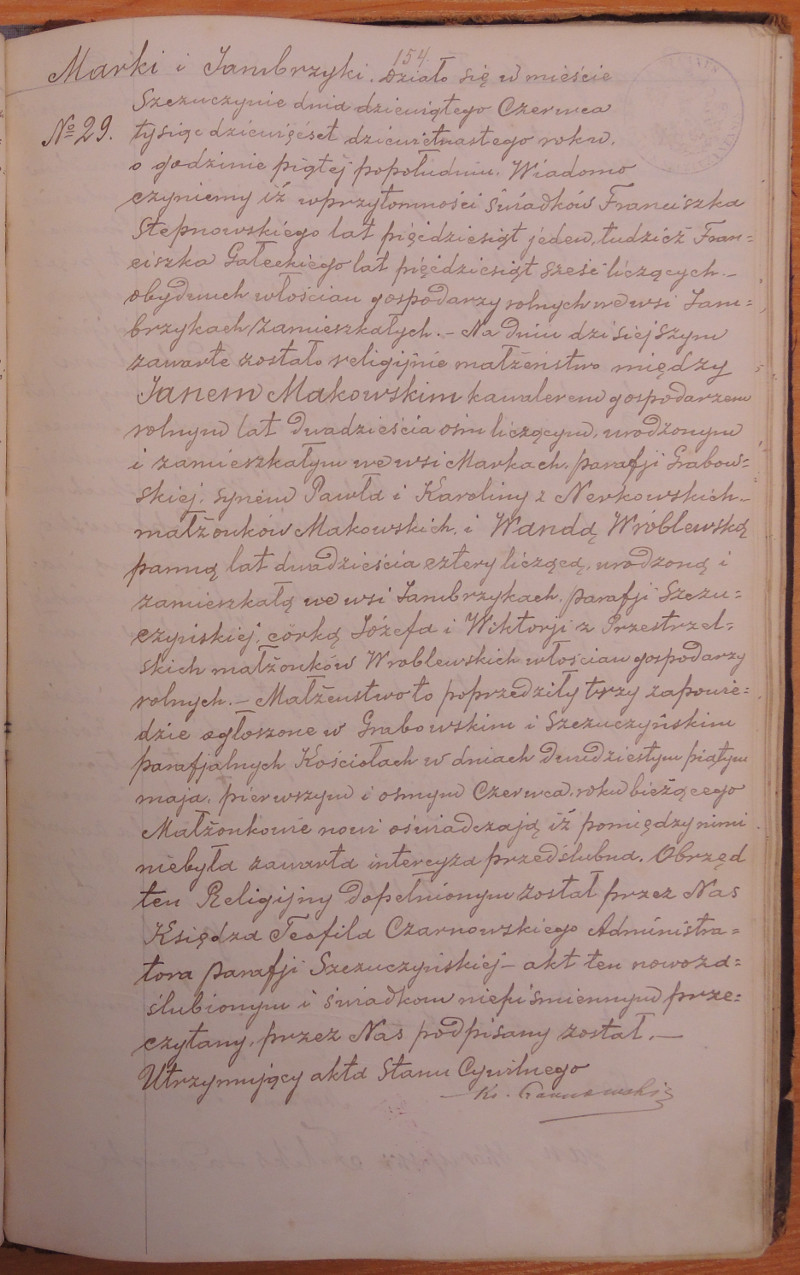 154
Marki i Jambrzyki. Działo się w mieście
Szczuczynie dnia dziewiątego Czerwca
№ 29. tysiąc dziewięćset dziewiętnastego roku,
o godzinie piątej popołudniu. Wiadomo
czyniemy iż wprzytomności świadków Franciszka
Stepnowskiego lat pięćdziesiąt jeden, tudzież Fran=
ciszka Gałeckiego lat pięćdziesiąt sześć liczących.–
obydwuch włościan gospodarzy rolnych we wsi Jam=
brzykach zamieszkałych.– Na dniu dzisiejszym
zawarte zostało religijnie małżeństwo między
Janem Makowskim kawalerem gospodarzem
rolnym lat dwadzieścia ośm liczącym, urodzonym
i zamieszkałym we wsi Markach, parafji Grabow=
skiej, synem Pawła i Karoliny z Nerkowskich–
małżonków Makowskich, i Wandą Wróblewską
panną lat dwadzieścia cztery liczącą, urodzoną i
zamieszkałą we wsi Jambrzykach, parafji Szczu=
czyńskiej, córką Józefa i Wiktorji z Przestrzel=
skich małżonków Wroblewskich włościan gospodarzy
rolnych.– Małżenstwo to poprzedziły trzy zapowie=
dzie ogłoszone w Grabowskim i Szczuczyńskim
parafjalnych Kościołach w dniach dwudziestym piątym
maja, pierwszym i osmym Czerwca, roku bieżącego
Małżonkowie nowi oświadczają iż pomiędzy nimi
niebyła zawarta intercyza przedślubna. Obrzęd
ten Religijny dopełnionym został przez Nas
Księdza Teofila Czarnowskiego Administra=
tora parafji Szczuczyńskiej– akt ten nowoza=
ślubionym i świadkom niepiśmiennym prze=
czytany, przez Nas podpisany został.–
Utrzymujący akta Stanu Cywilnego
Ks. Czarnowski